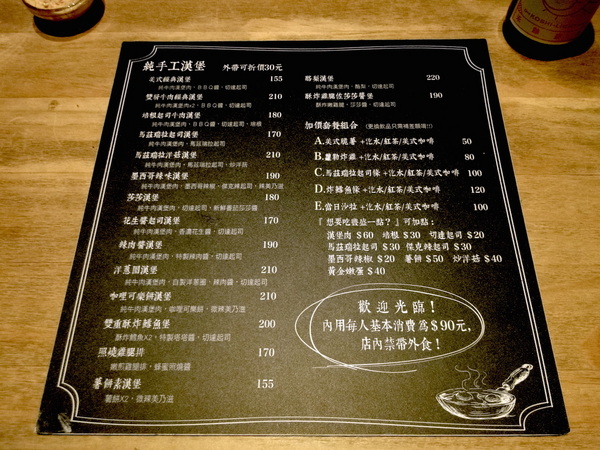 純手工漢堡 外帶可折價30元
美式經典漢堡 155
純牛肉漢堡肉、BBQ醬、切達起司
雙層牛肉經典漢堡 210
純牛肉漢堡肉x2、BBQ醬、切達起司
培根起司牛肉漢堡 180
純牛肉漢堡肉、BBQ醬、切達起司、培根
馬茲瑞拉起司漢堡 170
純牛肉漢堡肉、馬茲瑞拉起司
馬茲瑞拉洋菇漢堡 210
純牛肉漢堡肉、馬茲瑞拉起司、炒洋菇
墨西哥辣味漢堡 190
純牛肉漢堡肉、墨西哥辣椒、傑克辣起司、辣美乃滋
莎莎漢堡 180
純牛肉漢堡肉、切達起司、新鮮番茄莎莎醬
花生醬起司漢堡 170
純牛肉漢堡肉、香濃花生醬、切達起司
辣肉醬漢堡 190
純牛肉漢堡肉、特製辣肉醬、切達起司
洋蔥圈漢堡 210
純牛肉漢堡肉、自製洋蔥圈、辣肉醬、切達起司
咖哩可樂餅漢堡 210
純牛肉漢堡肉、咖哩可樂餅、微辣美乃滋
雙重酥炸鱈魚堡 200
酥炸鱈魚X2、特製塔塔醬、切達起司
照燒雞腿排 170
嫩煎雞腿排、蜂蜜照燒醬
薯餅素漢堡 155
薯餅X2、微辣美乃滋
酪梨漢堡 220
純牛肉漢堡肉、酪梨、切達起司
酥炸雞腿佐莎莎醬堡 190
酥炸嫩雞腿、莎莎醬、切達起司
加價套餐組合 (更換飲品只需補差額唷!!)
A.美式脆薯+汽水/紅茶/美式咖啡 50
B.薑勒炸雞+汽水/紅茶/美式咖啡 80
C.馬茲瑞拉起司條+汽水/紅茶/美式咖啡 100
D.炸鱈魚條+汽水/紅茶/美式咖啡 120
E.當日沙拉+汽水/紅茶/美式咖啡 100
『想要吃豐盛一點?』可加點:
漢堡肉$60 培根$30 切達起司$20
馬茲瑞拉起司$30 傑克辣起司$30
墨西哥辣椒$20 薯餅$50 炒洋菇$40
黃金嫩蛋$40
歡迎光臨!
內用每人基本消費為$90元,
店內禁帶外食!